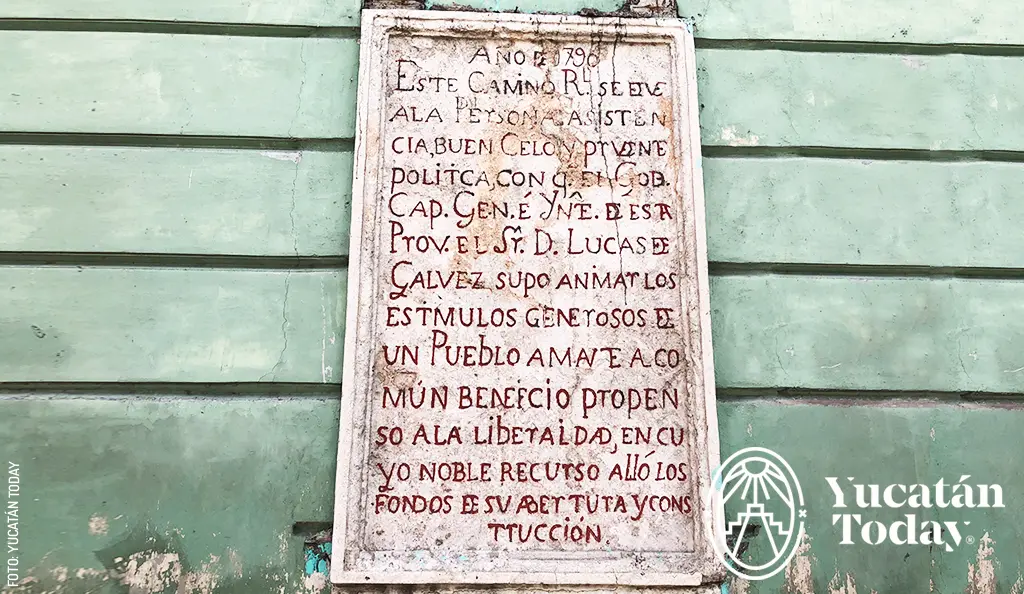 AÑO DE 1790
ESTE CAMINO Rl. SE DEVE
A LA PERSONAL ASISTEN
CIA, BUEN CELO, Y PRUDENTE
POLITCA, CON Q. EL GOB.
CAP. GEN. É YNTE. DE ESTA
PROV. EL Sr. D. LUCAS DE
GALVEZ, SUPO ANIMAR LOS
ESTÍMULOS GENEROSOS DE
UN PUEBLO AMANTE A CO
MÚN BENEFICIO PROPEN
SO A LA LIBERALDAD, EN CU
YO NOBLE RECURSO ALLÓ LOS
FONDOS DE SU ABERTURA Y CONS
TRUCCIÓN.
FOTO: YUCATÁN TODAY
Yucatán
Today